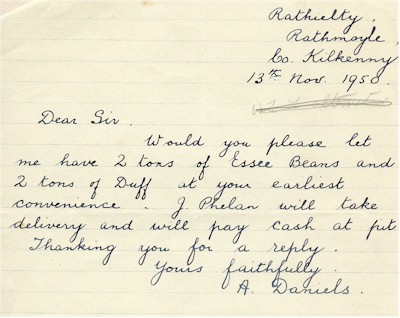 Rathielty,
Rathmoyle,
Co. Kilkenny
13th Nov. 1950.
Dear Sir.
Would you please let
me have 2 tons of Essee Beans and
2 tons of Duff at your earliest
convenience. J. Phelan will take
delivery and will pay cash at pit
Thanking you for a reply.
Yours faithfully.
A. Daniels.